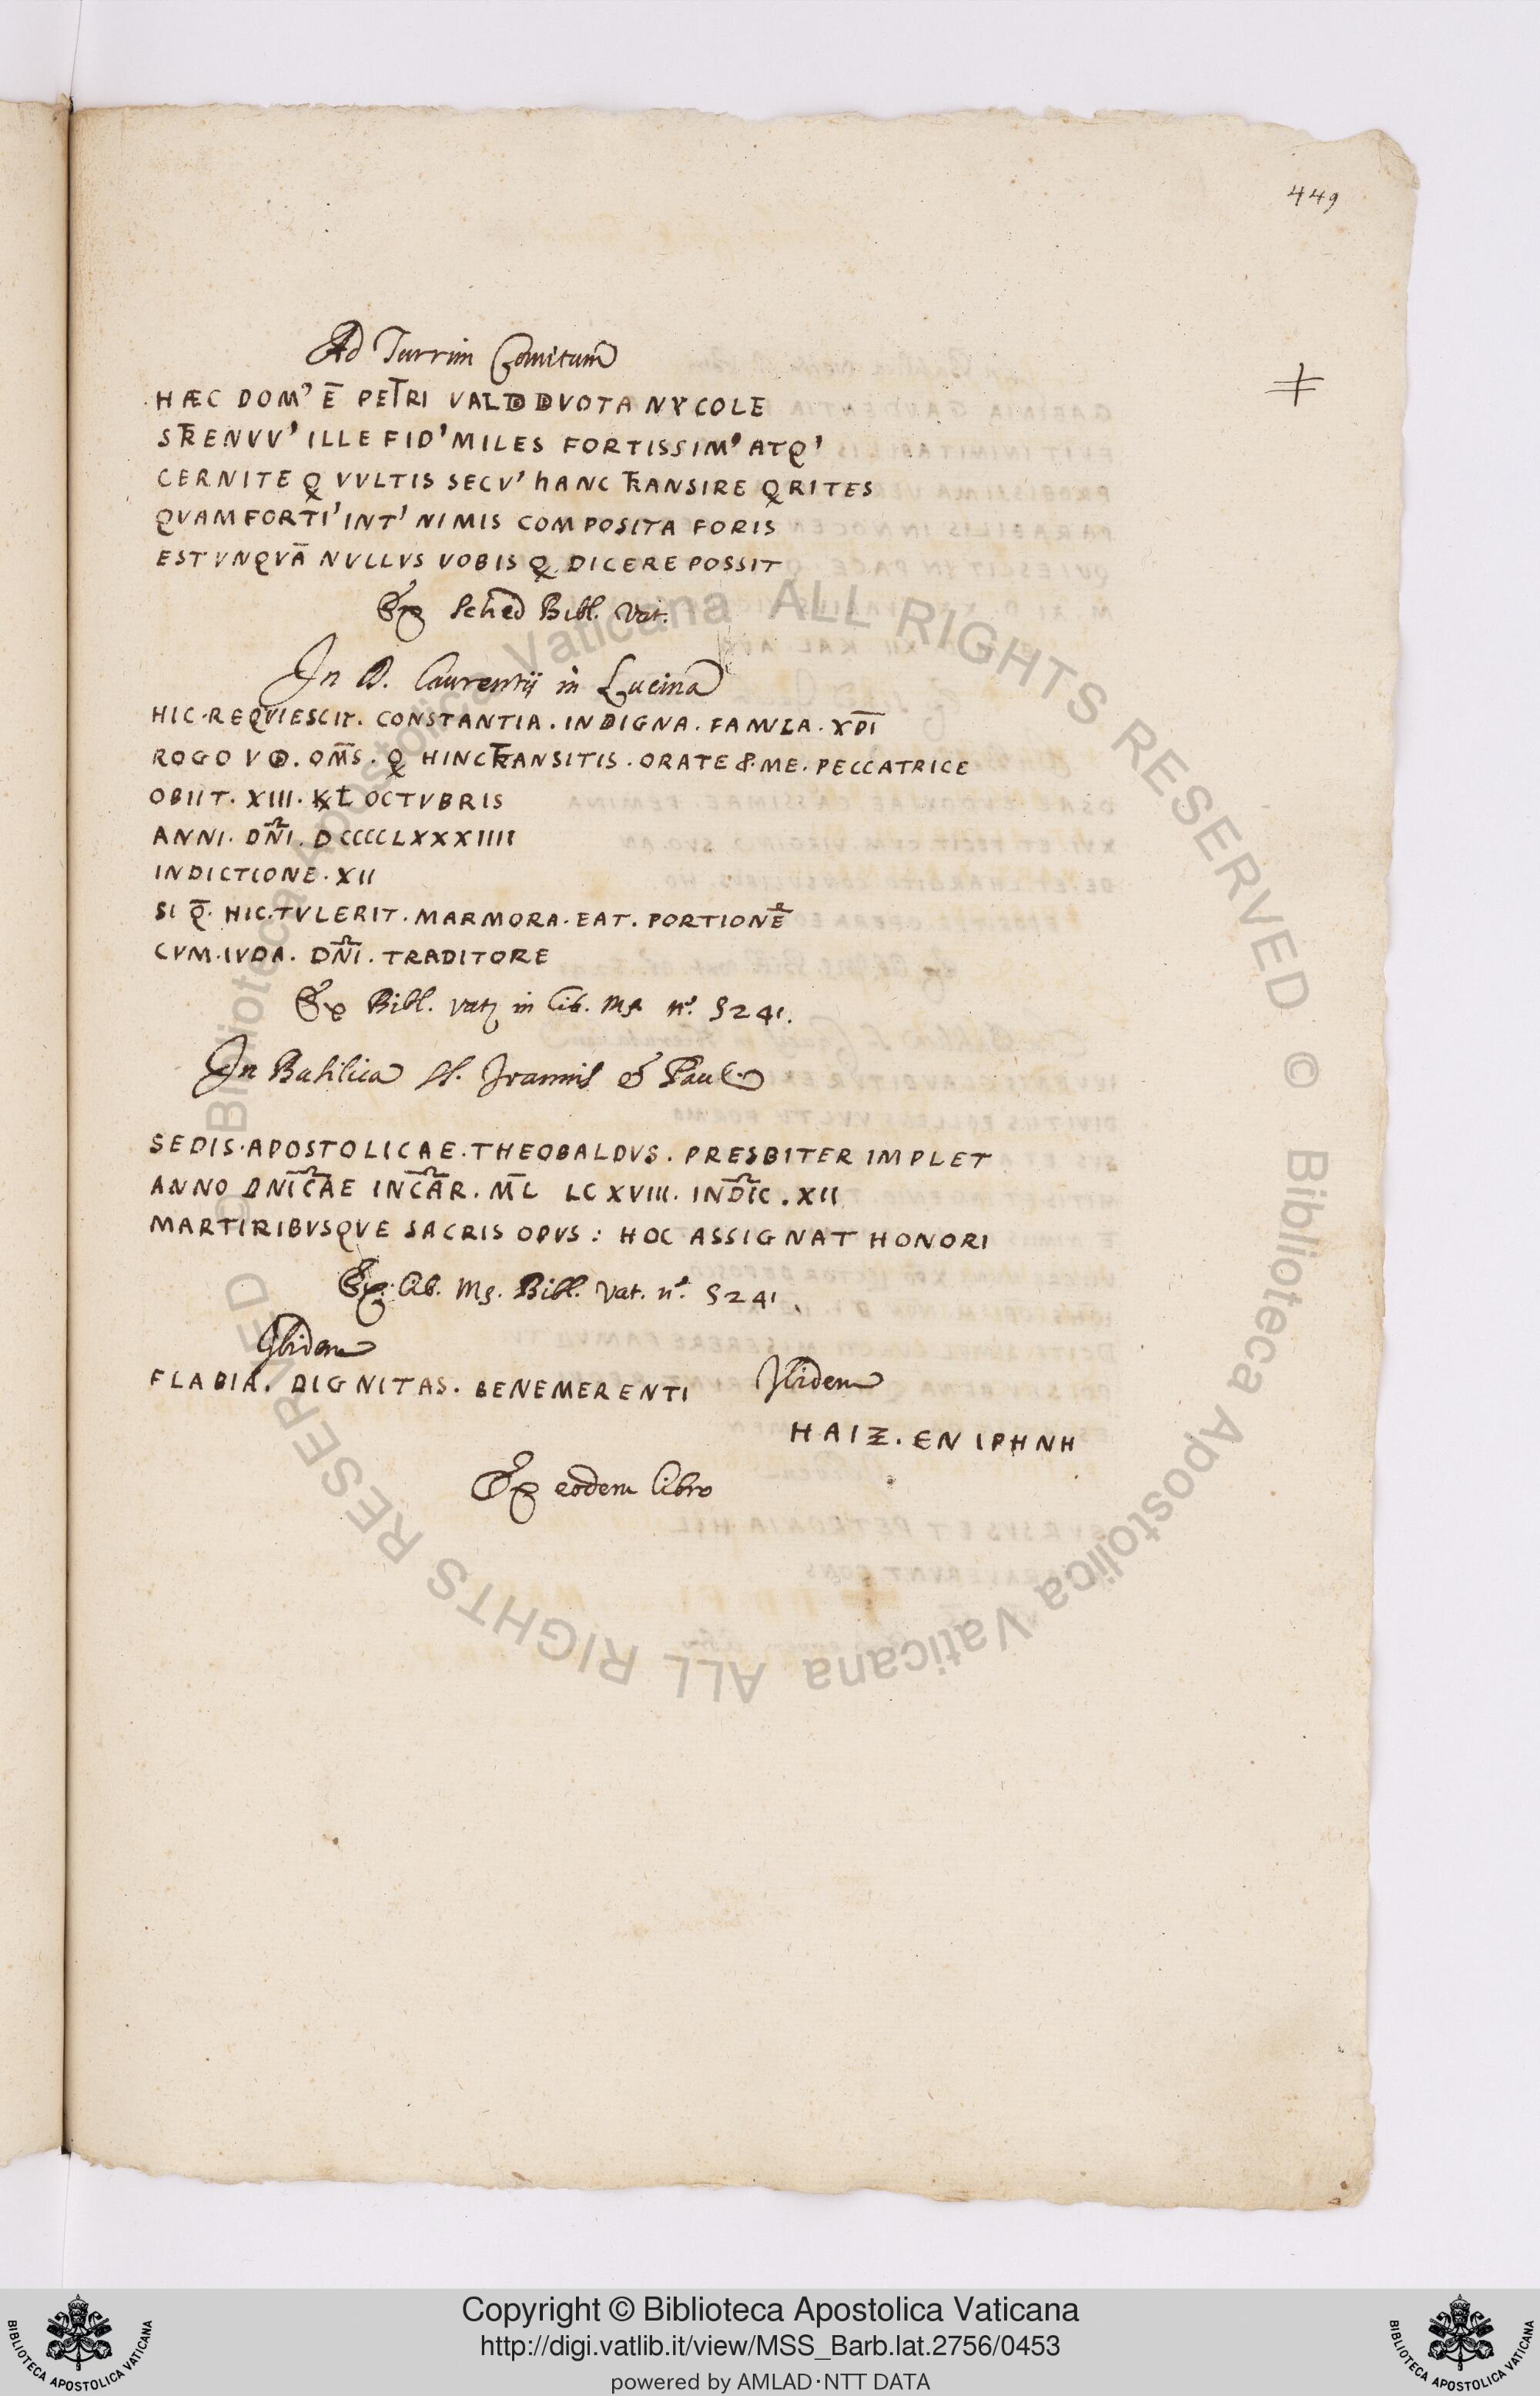 449
Ad Turrim Comitum
HÆC DOMʼ Ē PETRI VALDD DVOTA NYCOLE
STRENVVʼ ILLE FIDʼ MILES FORTISSIMʼ ATQʼ
CERNITE Q VVLTIS SECVʼ hANC TRANSIRE QRITES
QVAM FORTIʼ INTʼ NIMIS COMPOSITA FORIS
EST VNQVĀ NVLLVS VOBIS Q DICERE POSSIT
Ex Sched Bibl. Vat.
In D. Laurentij in Lucina
HIC·REQVIESCIT. CONSTANTIA. INDIGNA. FAMVLA. XPI
ROGO VO. OMS. Q HINC TRANSITIS. ORATE P. ME. PECCATRICE
OBIIT. XIII. KL OCTVBRIS
ANNI. DNI. DCCCCLXXXIIII
INDICTIONE. XII
SI Q. HIC. TVLERIT. MARMORA. EAT. PORTIONE
CVM. IVDA. DNI. TRADITORE
Ex Bibl. vat. in lib. Ms. nº. 5241.
In Basilica SS. Joannis & Pauli
SEDIS. APOSTOLICAE. THEOBALDVS. PRESBITER IMPLET
ANNO DNICAE INCAR. ML LCXVIII. INDIC. XII
MARTIRIBVSQVE SACRIS OPVS: HOC ASSIGNAT HONORI
Ex. lib. Ms. Bibl. Vat. nº. 5241.
Ibidem
FLABIA. DIGNITAS. BENEMERENTI
Ibidem
HAIZ. EN IPHNH
Ex eodem libro
© Biblioteca Apostolica Vaticana ALL RIGHTS RESERVED
© Biblioteca Apostolica Vaticana ALL RIGHTS RESERVED
Copyright © Biblioteca Apostolica Vaticana
http://digi.vatlib.it/view/MSS_Barb.lat.2756/0453
powered by AMLAD·NTT DATA
BIBLIOTECA APOSTOLICA VATICANA
BIBLIOTECA APOSTOLICA VATICANA